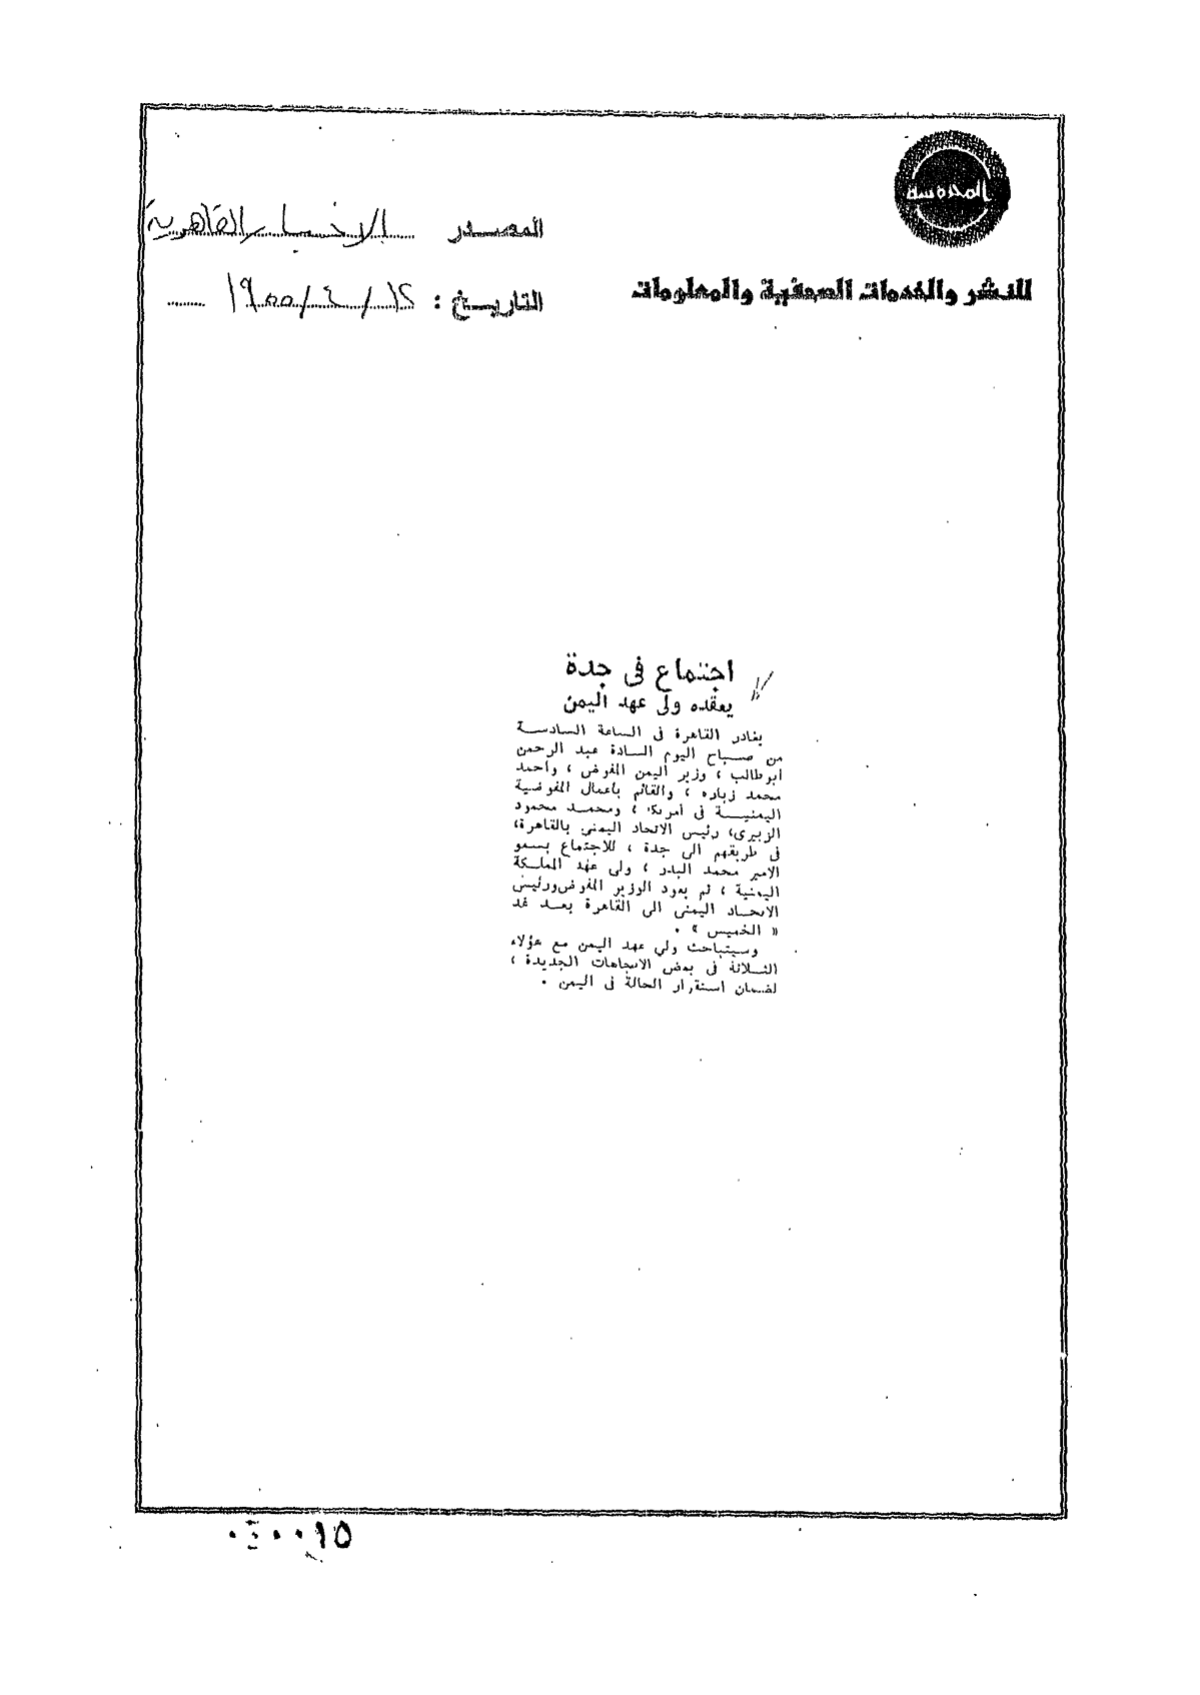 المحروسة
للنشر والخدمات الصحفية والمعلومات
المصدر الاخبار القاهرية
التاريخ : ١٢ / ٤ / ١٩٥٥
اجتماع فى جدة
يعقده ولى عهد اليمن
يغادر القاهرة فى الساعة السادسة
من صباح اليوم السادة عبد الرحمن
ابوطالب ، وزير اليمن المفوض ، واحمد
محمد زباره ، والقائم باعمال المفوضية
اليمنية فى أمريكا ، ومحمد محمود
الزبيرى، رئيس الاتحاد اليمنى بالقاهرة،
فى طريقهم الى جدة ، للاجتماع بسمو
الامير محمد البدر ، ولى عهد المملكة
اليمنية ، ثم يعود الوزير المفوض ورئيس
الاتحاد اليمنى الى القاهرة بعد غد
« الخميس » .
وسيتباحث ولى عهد اليمن مع هؤلاء
الثلاثة فى بعض الاتجاهات الجديدة ،
لضمان استقرار الحالة فى اليمن .